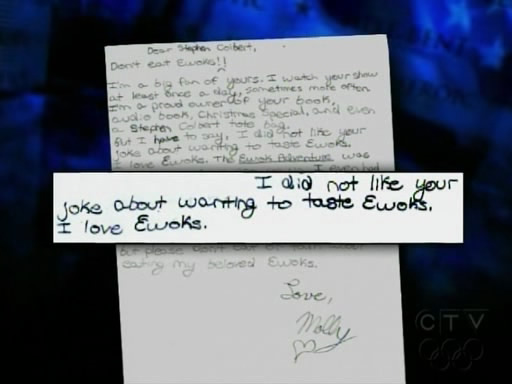 Dear Stephen Colbert,
Don't eat Ewoks!!
I'm a big fan of yours. I watch your show
at least once a day, sometimes more often
I'm a proud owner of your book,
audio book, Christmas Special, and even
a Stephen Colbert tote bag.
But I have to say, I did not like your
joke about wanting to taste Ewoks.
I love Ewoks. The Ewok Adventure was
I did not like your
joke about wanting to taste Ewoks.
I love Ewoks.
but please don't
eating my beloved Ewoks.
Love,
Molly
CTV